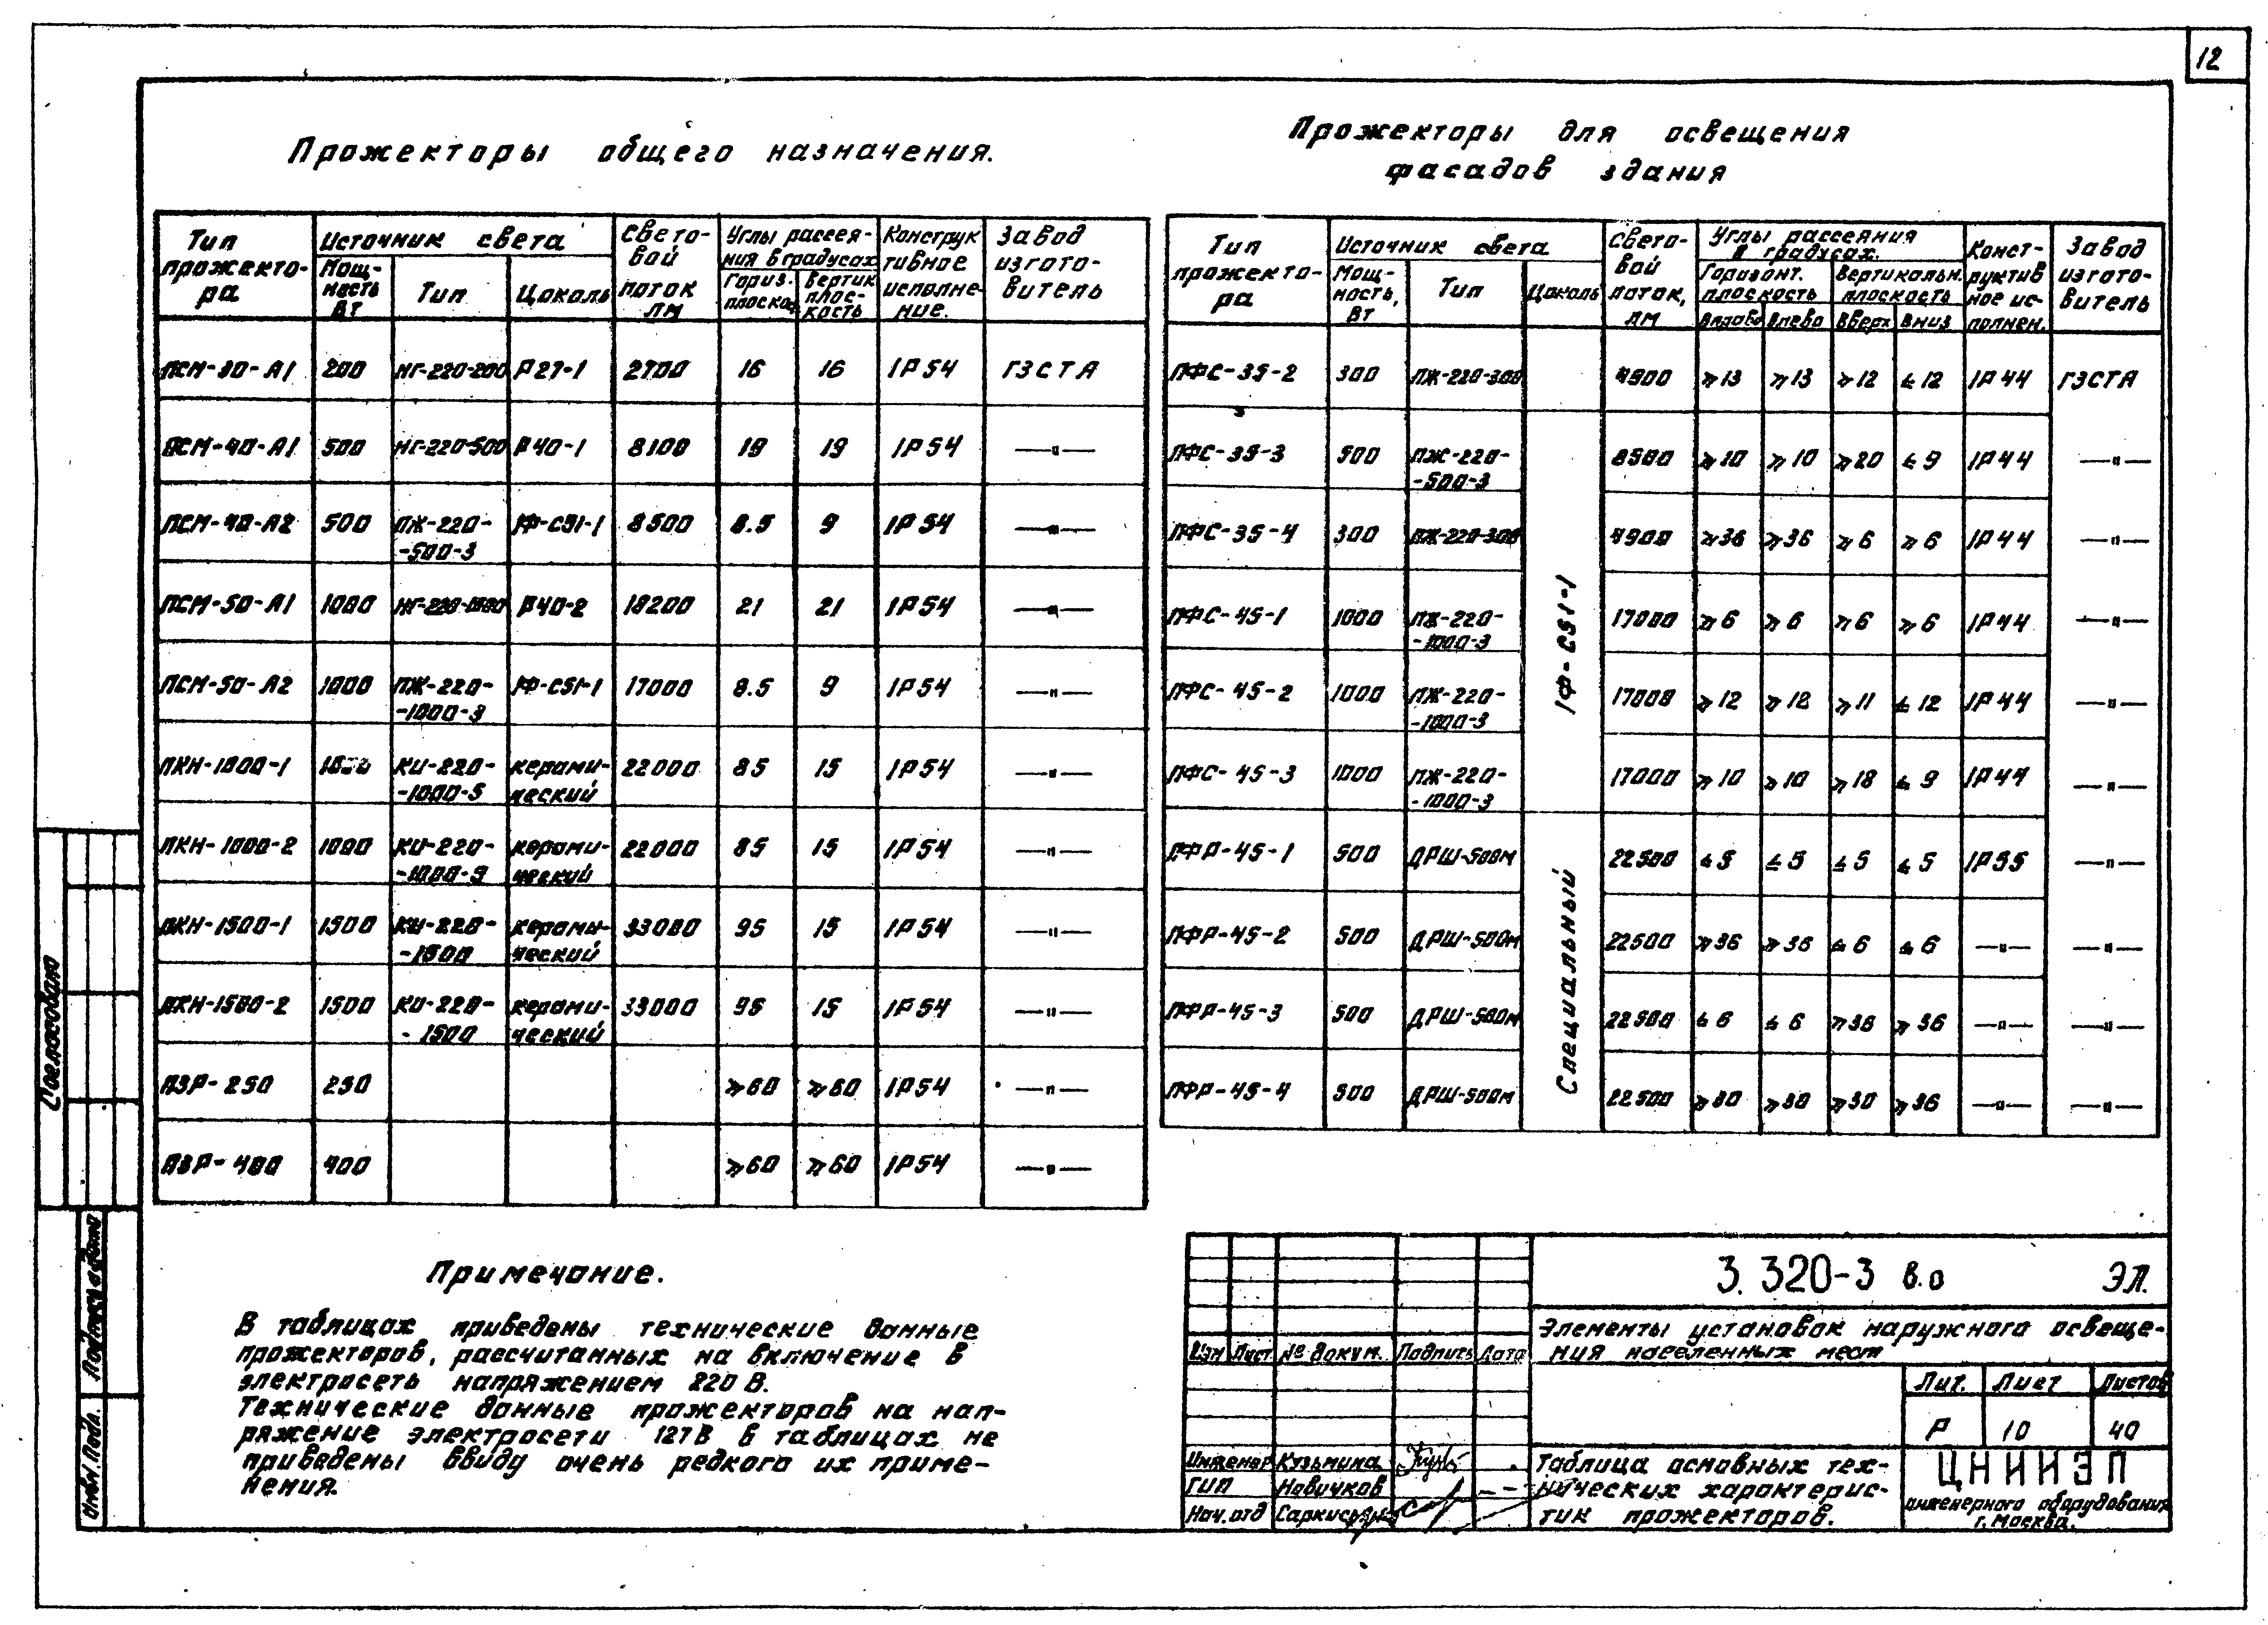 12
Прожекторы общего назначения.
Тип прожектора | Источник света | Световой поток лм | Углы рассеяния в градусах | Конструктивное исполнение. | Завод изготовитель
Мощность Вт | Тип | Цоколь | Гориз. плоскос. | Вертик плоскость
ПСМ-30-А1 200 НГ-220-200 Р27-1 2700 16 16 IP54 ГЗСТА
ПСМ-40-А1 500 НГ-220-500 Р40-1 8100 19 19 IP54 —"—
ПСМ-40-А2 500 ПЖ-220-500-3 1Ф-С51-1 8500 8.5 9 IP54 —"—
ПСМ-50-А1 1000 НГ-220-1000 Р40-2 18200 21 21 IP54 —"—
ПСМ-50-А2 1000 ПЖ-220-1000-3 1Ф-С51-1 17000 8.5 9 IP54 —"—
ПКН-1000-1 1000 КИ-220-1000-5 керамический 22000 85 15 IP54 —"—
ПКН-1000-2 1000 КИ-220-1000-9 керамический 22000 85 15 IP54 —"—
ПКН-1500-1 1500 КИ-220-1500 керамический 33000 95 15 IP54 —"—
ПКН-1500-2 1500 КИ-220-1500 керамический 33000 95 15 IP54 —"—
ПЗР-250 250 ≥60 ≥60 IP54 —"—
ПЗР-400 400 ≥60 ≥60 IP54 —"—
Прожекторы для освещения
фасадов здания
Тип прожектора | Источник света | Световой поток, лм | Углы рассеяния в градусах. | Конструктивное исполнен. | Завод изготовитель
Мощность, Вт | Тип | Цоколь | Горизонт. плоскость | Вертикальн. плоскость
Вправо | Влево | Вверх | Вниз
ПФС-35-2 300 ПЖ-220-300 4900 ≥13 ≥13 ≥12 ≤12 IP44 ГЗСТА
ПФС-35-3 500 ПЖ-220-500-3 8500 ≥10 ≥10 ≥20 ≤9 IP44 —"—
ПФС-35-4 300 ПЖ-220-300 4900 ≥36 ≥36 ≥6 ≥6 IP44 —"—
1Ф-С51-1
ПФС-45-1 1000 ПЖ-220-1000-3 17000 ≥6 ≥6 ≥6 ≥6 IP44 —"—
ПФС-45-2 1000 ПЖ-220-1000-3 17000 ≥12 ≥12 ≥11 ≤12 IP44 —"—
ПФС-45-3 1000 ПЖ-220-1000-3 17000 ≥10 ≥10 ≥18 ≤9 IP44 —"—
Специальный
ПФР-45-1 500 ДРШ-500М 22500 ≤5 ≤5 ≤5 ≤5 IP55 —"—
ПФР-45-2 500 ДРШ-500М 22500 ≥36 ≥36 ≤6 ≤6 —"— —"—
ПФР-45-3 500 ДРШ-500М 22500 ≤6 ≤6 ≥36 ≥36 —"— —"—
ПФР-45-4 500 ДРШ-500М 22500 ≥30 ≥30 ≥30 ≥36 —"— —"—
Примечание.
В таблицах приведены технические данные
прожекторов, рассчитанных на включение в
электросеть напряжением 220 В.
Технические данные прожекторов на нап-
ряжение электросети 127В в таблицах не
приведены ввиду очень редкого их приме-
нения.
Согласовано
Подпись и дата
Инв.N.Подл.
3.320-3 в.0 ЭЛ.
Изм Лист № докум. Подпись Дата
Элементы установок наружного освеще-
ния населенных мест
Лит. Лист Листов
Р 10 40
Инженер Кузьмина
ГИП Новичков
Нач.отд Саркисянц
Таблица основных тех-
нических характерис-
тик прожекторов.
ЦНИИЭП
инженерного оборудования
г. Москва.